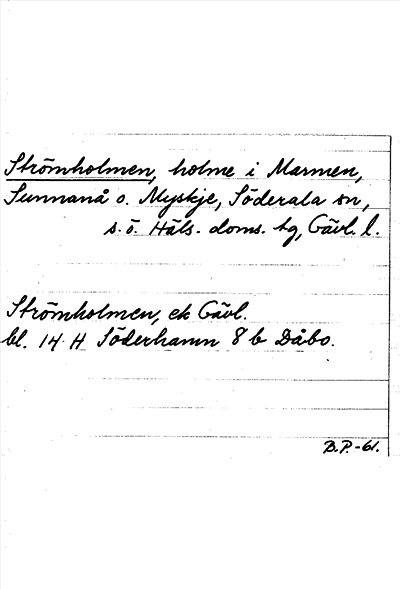 Strömholmen, holme i Marmen,
Sunnanå o. Myskje, Söderala sn,
s. ö. Häls. doms. tg, Gävl. l.
Strömholmen, ek Gävl.
bl. 14 H Söderhamn 8 b Dåbo.
B.P.-61.